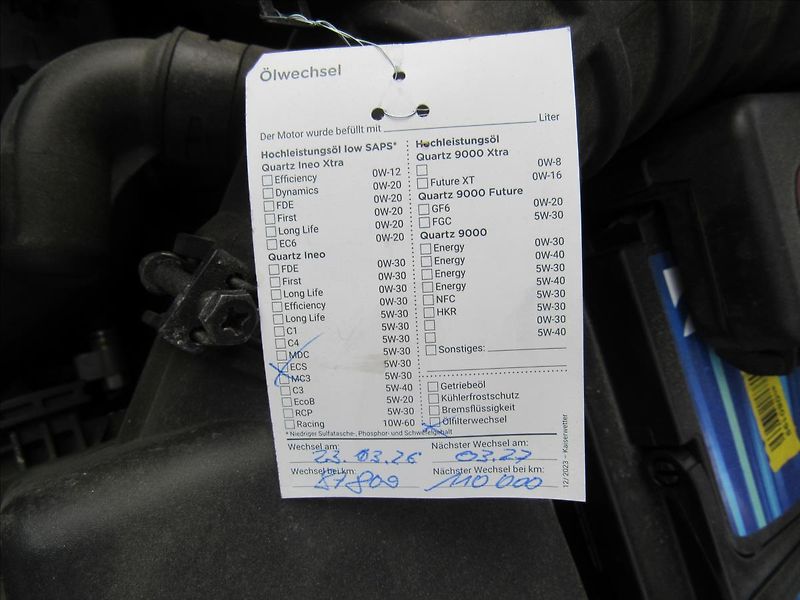 Ölwechsel
Der Motor wurde befüllt mit Liter
Hochleistungsöl low SAPS*
Quartz Ineo Xtra
Efficiency 0W-12
Dynamics 0W-20
FDE 0W-20
First 0W-20
Long Life 0W-20
EC6 0W-20
Quartz Ineo
FDE 0W-30
First 0W-30
Long Life 0W-30
Efficiency 0W-30
Long Life 5W-30
C1 5W-30
C4 5W-30
MDC 5W-30
ECS 5W-30
MC3 5W-30
C3 5W-40
EcoB 5W-20
RCP 5W-30
Racing 10W-60
* Niedriger Sulfatasche-, Phosphor- und Schwefelgehalt
Hochleistungsöl
Quartz 9000 Xtra
0W-8
Future XT 0W-16
Quartz 9000 Future
GF6 0W-20
FGC 5W-30
Quartz 9000
Energy 0W-30
Energy 0W-40
Energy 5W-30
Energy 5W-40
NFC 5W-30
HKR 5W-30
0W-30
5W-40
Sonstiges:
Getriebeöl
Kühlerfrostschutz
Bremsflüssigkeit
Ölfilterwechsel
Wechsel am: 23.03.26
Nächster Wechsel am: 03.27
Wechsel bei km: 87809
Nächster Wechsel bei km: 110 000
12/2023 – Kaiserwetter